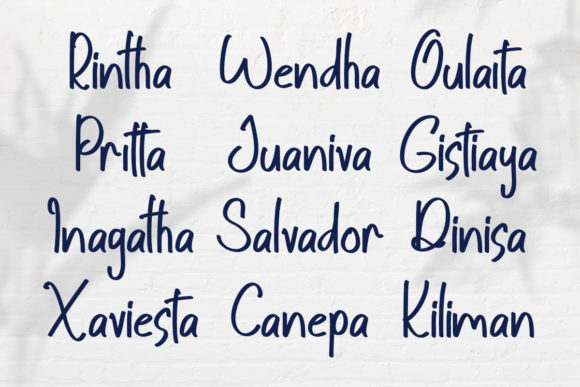 Rintha Wendha Oulaita
Pritta Juaniva Gistiaya
Inagatha Salvador Dinisa
Xaviesta Canepa Kiliman